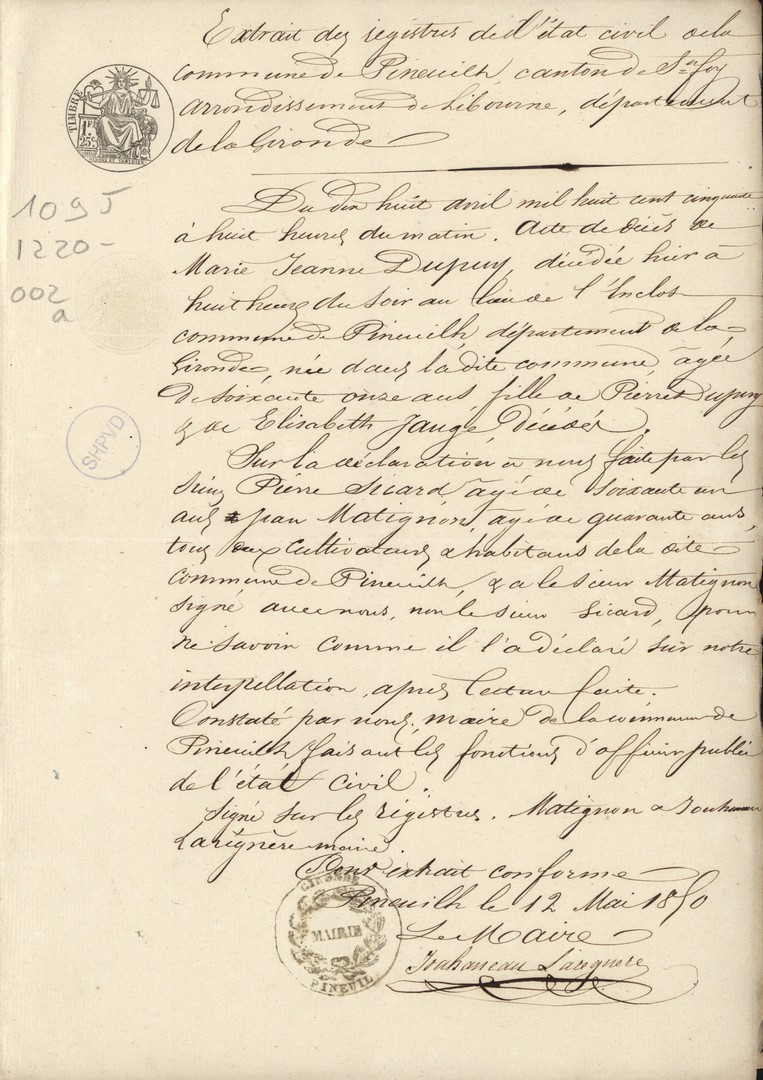 Extrait des registres de l'état civil de la
commune de Pineuilh, canton de Ste foy
arrondissement de Libourne, département
de la Gironde
TIMBRE
1F
25c
1095
1220-
002
a
SHPVD
Du dix huit avril mil huit cent cinquante
à huit heures du matin. Acte de décès de
Marie Jeanne Dupuy, décédée hier à
huit heures du soir au lieu de l'Enclos
commune de Pineuilh, département de la
Gironde, née dans la dite commune, âgée
de soixante onze ans fille de Pierre Dupuy
& de Elisabeth Jaugé décédés.
Sur la déclaration à nous faite par les
sieurs Pierre Sicard âgé de soixante un
ans & jean Matignon, âgé de quarante ans,
tous deux cultivateurs & habitans de la dite
commune de Pineuilh, & a le sieur Matignon
signé avec nous, non le sieur Sicard, pour
ne savoir comme il l'a déclaré sur notre
interpellation, après lecture faite.
Constaté par nous, maire de la commune de
Pineuilh faisant les fonctions d'officier public
de l'état civil.
Signé sur les régistres. Matignon & Jouhanneau
Larégnère maire.
Pour extrait conforme
Pineuilh le 12 Mai 1850
Le Maire
Jouhanneau Laregnere
GIRONDE
MAIRIE
PINEUIL